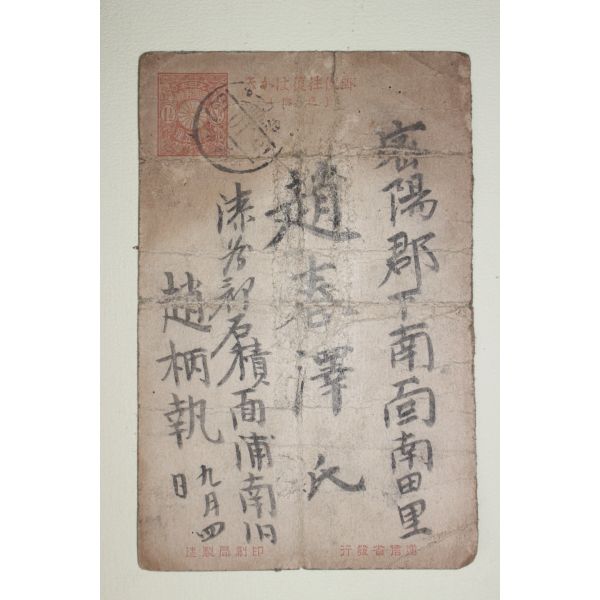 郵便往復はがき
密陽郡下南面南田里
趙春澤氏
漆谷郡石積面浦南旧
趙柄執
九月四
日
遞信省發行
印刷局製造